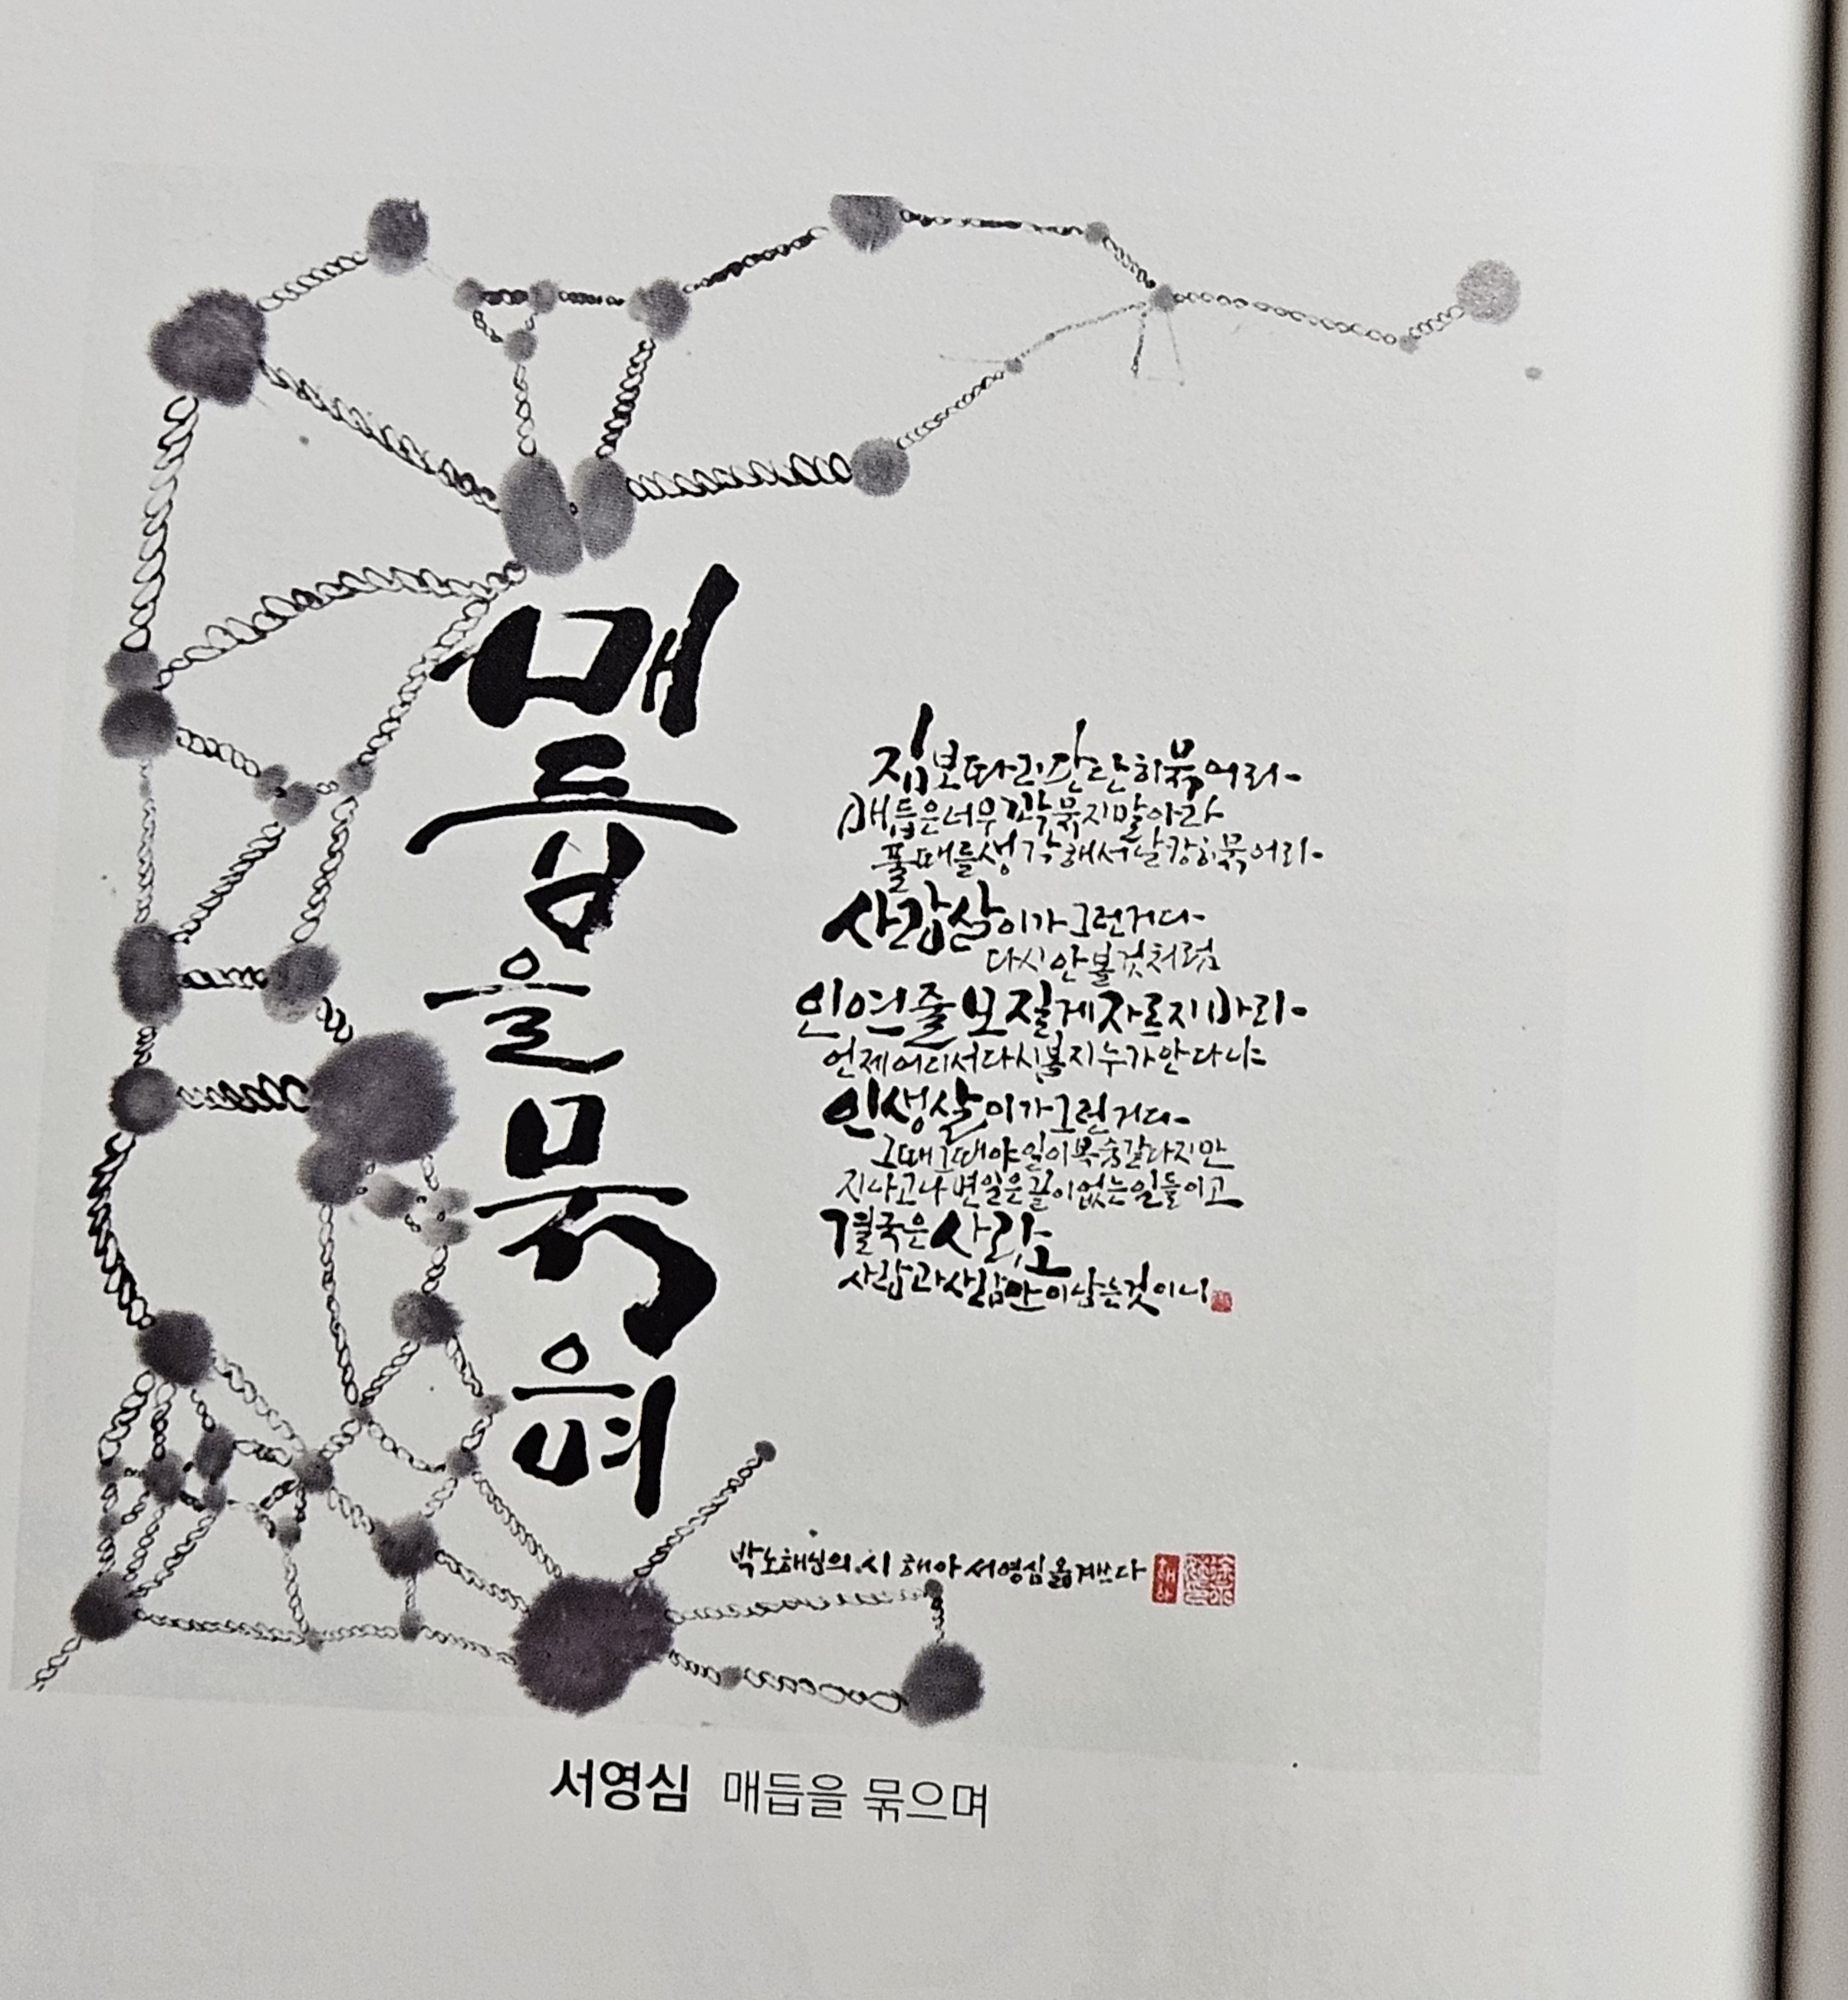 매듭을 묶으며
짐보따리 단단히 묶어라
매듭은 너무 꽉 묶지 말아라
풀 때를 생각해서 날캉히 묶어라
사람살이가 그런 거다
다시 안 볼 것처럼
인연줄 모질게 자르지 마라
언제 어디서 다시 볼지 누가 안다냐
인생살이가 그런 거다
그때 그때야 일이 복숭 같다지만
지나고 나면 일은 끝이 없는 일들이고
결국은 사람
사람과 사람만이 남는 것이니
박노해님의 시 해아 서영심 옮겨쓰다
해아
서영심 매듭을 묶으며